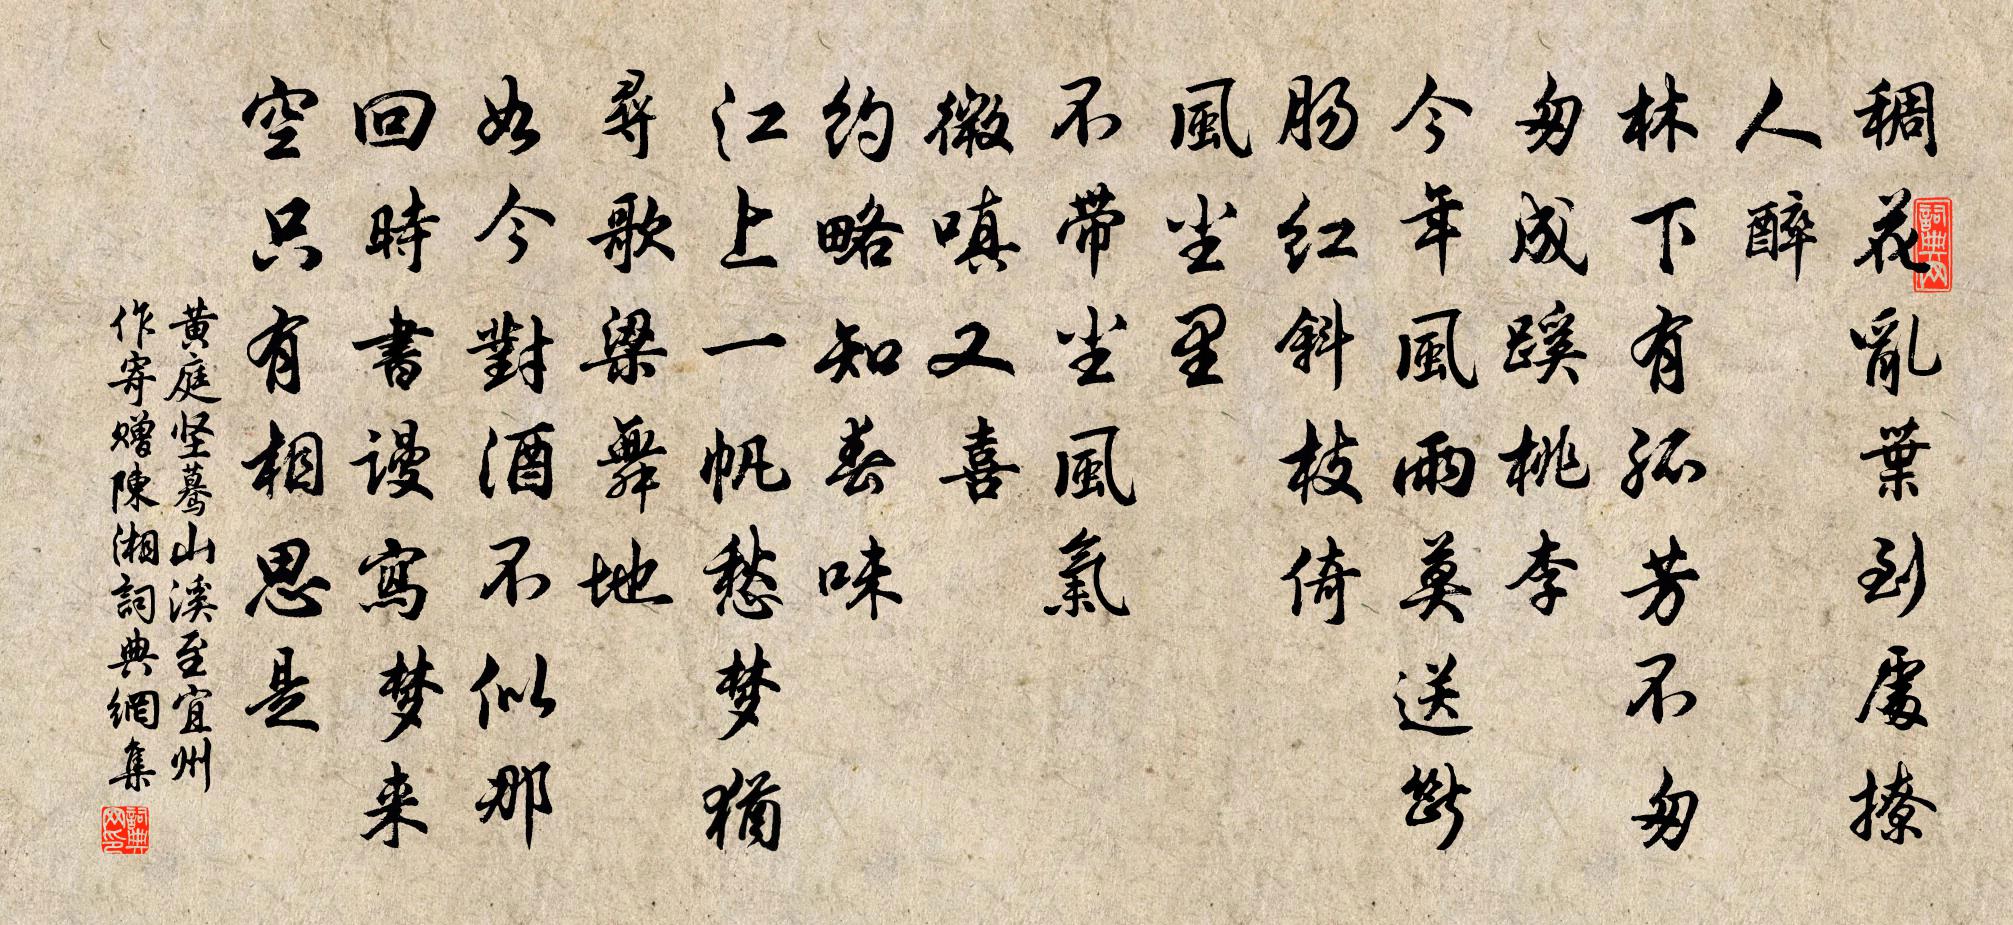 稠花亂葉到處撩
人醉
林下有孤芳不匆
匆成蹊桃李
今年風雨莫送斷
腸紅斜枝倚
風尘里
不帶尘風氣
微嗔又喜
約略知春味
江上一帆愁梦猶
尋歌梁舞地
如今對酒不似那
回時書謾寫梦来
空只有相思是
黄庭坚驀山溪至宜州
作寄赠陳湘詞典網集
詞典网
詞典网印